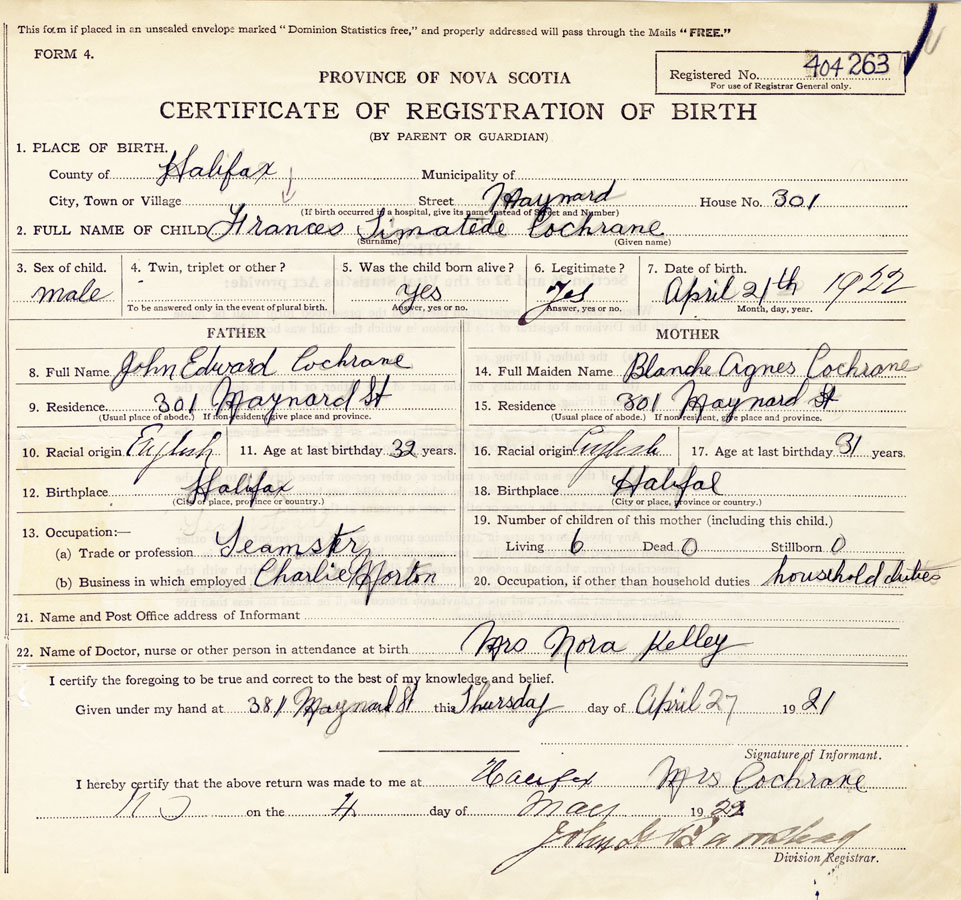 This form if placed in an unsealed envelope marked "Dominion Statistics free," and properly addressed will pass through the Mails "FREE."
FORM 4.
Registered No. 404263
For use of Registrar General only.
PROVINCE OF NOVA SCOTIA
CERTIFICATE OF REGISTRATION OF BIRTH
(BY PARENT OR GUARDIAN)
1. PLACE OF BIRTH.
County of Halifax Municipality of
City, Town or Village Street Maynard House No. 301
(If birth occurred in a hospital, give its name instead of Street and Number)
2. FULL NAME OF CHILD Frances Timatede Cochrane
(Surname) (Given name)
3. Sex of child. 4. Twin, triplet or other? 5. Was the child born alive? 6. Legitimate? 7. Date of birth.
male - yes yes April 21th 1922
To be answered only in the event of plural birth. Answer, yes or no. Answer, yes or no. Month, day, year.
FATHER MOTHER
8. Full Name John Edward Cochrane 14. Full Maiden Name Blanche Agnes Cochrane
9. Residence. 301 Maynard St 15. Residence 301 Maynard St
(Usual place of abode.) If non-resident, give place and province. (Usual place of abode.) If non-resident, give place and province.
10. Racial origin English 11. Age at last birthday 32 years. 16. Racial origin English 17. Age at last birthday 31 years.
12. Birthplace Halifax 18. Birthplace Halifal
(City or place, province or country.) (City or place, province or country.)
13. Occupation:— 19. Number of children of this mother (including this child.)
(a) Trade or profession Teamster Living 6 Dead 0 Stillborn 0
(b) Business in which employed Charlie Horton 20. Occupation, if other than household duties household duties
21. Name and Post Office address of Informant
22. Name of Doctor, nurse or other person in attendance at birth Mrs Nora Kelley
I certify the foregoing to be true and correct to the best of my knowledge and belief.
Given under my hand at 381 Maynard St this Thursday day of April 27 1921
Signature of Informant.
I hereby certify that the above return was made to me at Halifax Mrs Cochrane
N S on the 4 day of May 1922
John
Division Registrar.